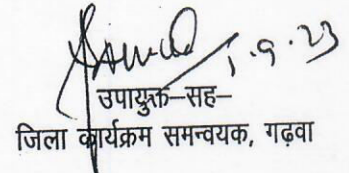 1.9.23
उपायुक्त-सह-
जिला कार्यक्रम समन्वयक, गढ़वा